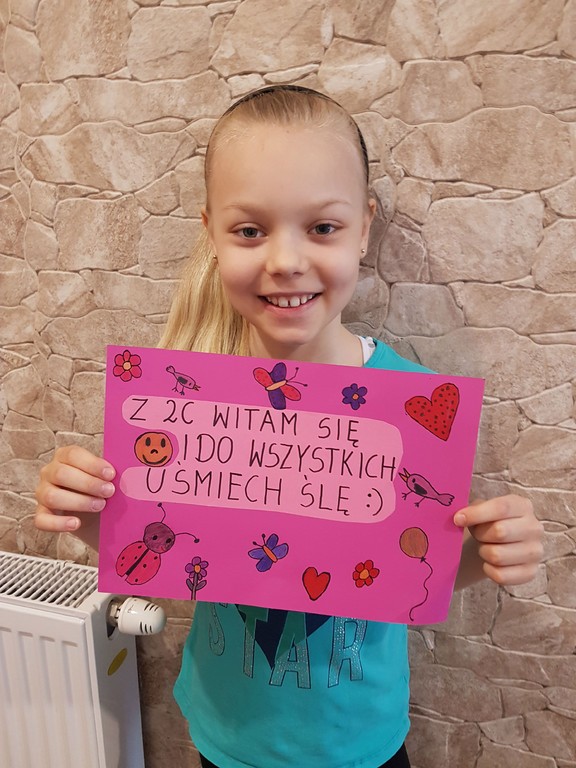 Z 2C WITAM SIĘ
I DO WSZYSTKICH
UŚMIECH ŚLĘ :)
STAR